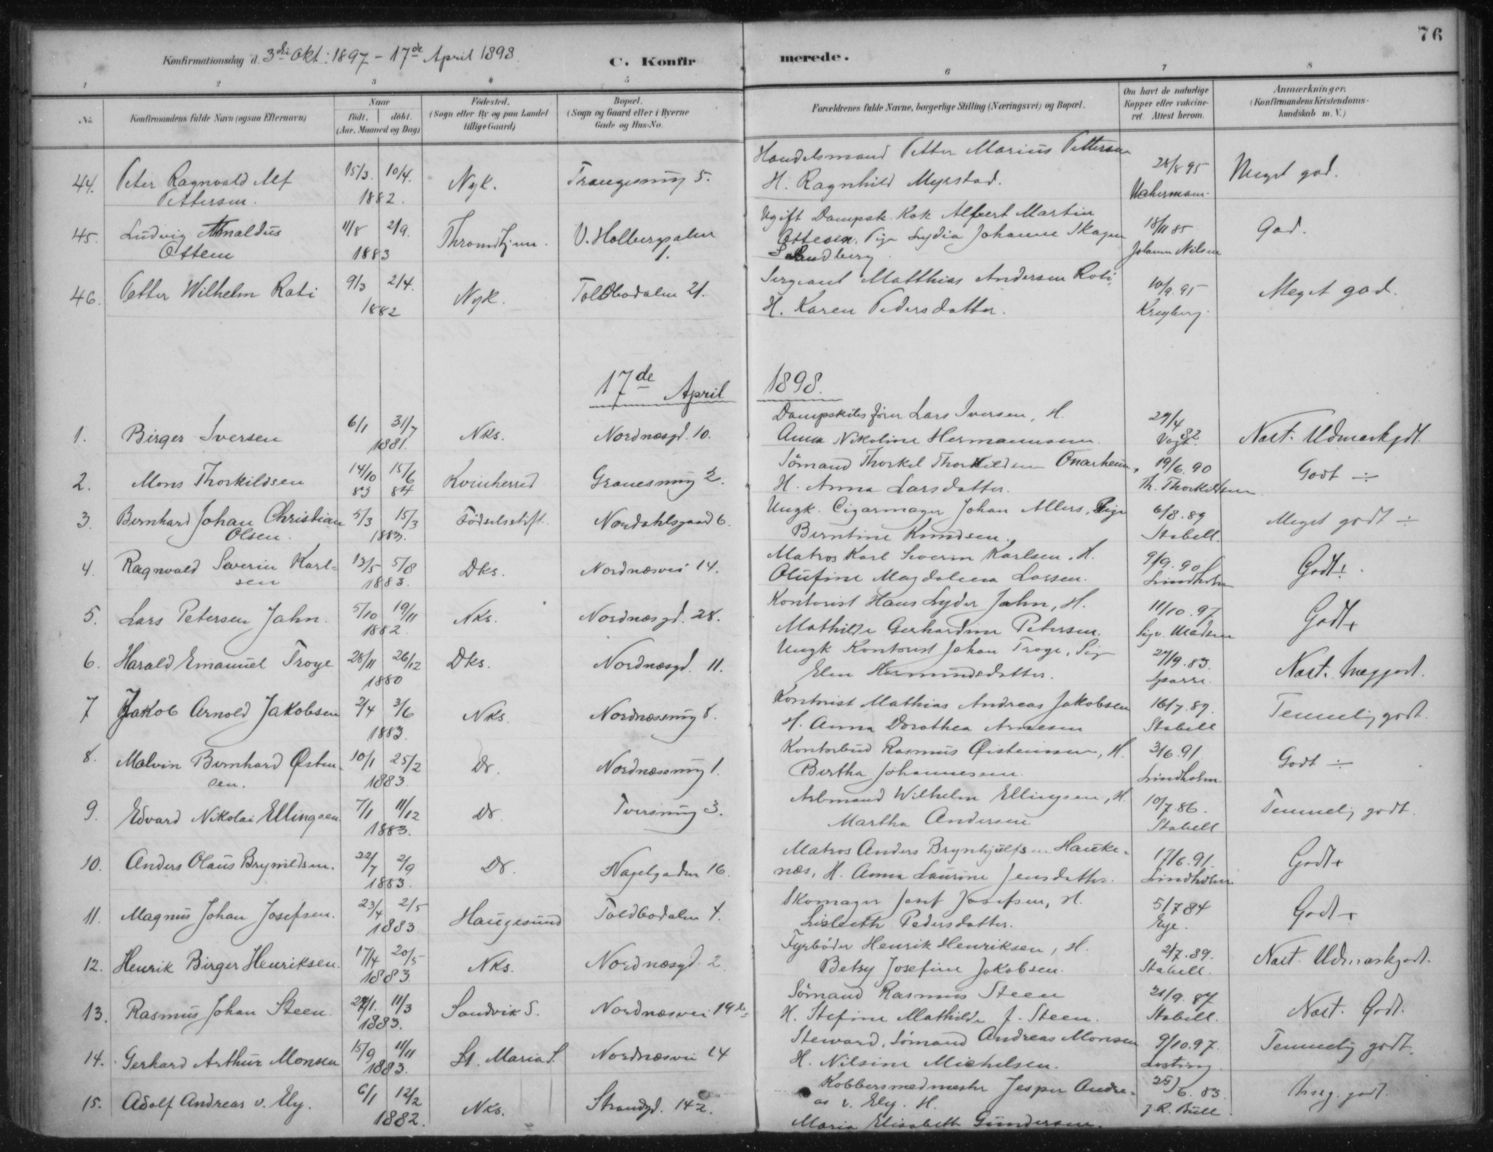 76
Konfirmationsdag d. 3die Okt: 1897 - 17de April 1898.
C. Konfirmerede.
1 2 3 4 5 6 7 8
No. Konfirmandens fulde Navn (ogsaa Efternavn) Naar født. døbt. (Aar, Maaned og Dag) Fødested. (Sogn eller By og paa Landet tillige Gaard) Bopæl. (Sogn og Gaard eller i Byerne Gade og Hus-No. Forældrenes fulde Navne, borgerlige Stilling (Næringsvei) og Bopæl. Om havt de naturlige Kopper eller vaccineret. Attest herom. Anmærkninger. (Konfirmandens Kristendomskundskab m. V.)
44. Peter Ragnvald Alf 15/3. 10/4. Nyk. 5. Handelsmand Petter Marius Pettersen 24/8 95 Meget god.
Pettersen. 1882. H. Ragnhild Myrstad.
45. Ludvig Arnaldus 11/8 2/9. Thromhjem. V. Holbergsalm Ugift Dampsk. Kok Alfert Martin 18/11 85 God.
Ottesen 1883 1. Ottesen. Pige Lydia Johanne Skagen Johann Nilsen
Sandberg.
46. Petter Wilhelm Roti 9/3 2/4. Nyk. Toldbodalm 21. Sergeant Matthias Andersen Roti, 10/9. 95 Meget god.
1882 H. Karen Pedersdatter. Kregberg.
17de April 1898.
1. Birger Iversen 6/1 31/7 Nks. Nordnæsgd. 10. Dampskibsfører Lars Iversen, H. 29/4 Nost. Udmærkgdt.
1881. Anna Nikoline Hermannsen. Vogt. 82
2. Mons Thorkildsen 14/10 15/6 Kvinherred 2. Sømand Thorkel Thorkildsen Onarheim, 19/6. 90 Godt ÷
83 84 H. Anna Larsdatter. Th. Thorkildsen
3. Bernhard Johan Christian 5/3 15/3 Fødselsstift. Nordahlsgaard 6. Ungk. Cigarmager Johan Allers, Pige 6/8. 89 Meget godt ÷
Olsen. 1883. Berntine Knudsen. Stabell.
4. Ragnvald Severin Karl- 13/5 5/8 Dks. Nordnæsvei 14. Matros Karl Severin Karlsen, H. 9/9. 90 Godt.
sen 1883. Olufine Magdalena Larsen. Lindholm
5. Lars Petersen Jahn. 5/10 19/11 Nks. Nordnæsgd. 28. Kontorist Hans Lyder Jahn, H. 11/10. 97 Godt+
1882. Mathilde Gerhardine Petersen. Sigv. Madsen
6. Harald Emanuel Troye 28/11 26/12 Dks. Nordnæsgd. 11. Ungk Kontorist Johan Troye, Pig 27/9. 83. Nost. meggodt.
1880 Elen Hermundsdatter. Sparre.
7 Jakob Arnold Jakobsen 2/4 3/6 Nks. Nordnæssmug 8. Kontorist Mathias Andreas Jakobsen 16/7. 87. Temmelig godt.
1883. H. Anna Dorothea Arnesen Stabell
8. Malvin Bernhard Østen- 10/1 25/2 Do. Nordnæssmug 1. Kontorbud Rasmus Øistensen, H. 3/6. 91. Godt ÷
sen. 1883 Bertha Johannesen. Lindholm
9. Edvard Nikolai Ellingsen. 7/1 11/12 Do. Tversmug 3. Arbmand Wilhelm Ellingsen, H. 10/7. 86. Temmelig godt.
1883. Martha Andersen. Stabell
10. Anders Olaus Brynildsen. 22/7 2/9 Do. Nagelgaden 16. Matros Anders Brynhjulfsen Hauke- 17/6. 91. Godt+
1883. næs, H. Anna Laurine Jensdatter. Lindholm
11. Magnus Johan Josefsen. 23/4 2/5 Haugesund Toldbodalm 4. Skomager Josef Josefsen, H. 5/7 84 Godt+
1883 Lisbeth Pedersdatter. Eye.
12. Henrik Birger Henriksen. 17/4 20/5 Nks. Nordnæsgd. 2. Fyrbøder Henrik Henriksen, H. 2/7. 89. Nost. Udmærkgodt.
1883 Betsy Josefine Jakobsen. Stabell.
13. Rasmus Johan Steen. 29/1. 11/3 Sandvik S. Nordnæsvei 19 Sømand Rasmus Steen 21/9. 87 Nost. Godt.
1883. H. Stefine Mathilde J. Steen. Stabell.
14. Gerhard Arthur Monsen 15/9 11/11 St. Maria S. Nordnæsvei 24 Steward, Sømand Andreas Monsen 9/10. 97. Temmelig godt.
1883. H. Nilsine Michelsen.
15. Adolf Andreas v. Ely. 6/1 12/2 Nks. Strandgd. 142. Kobbersmedmester Jesper Andre- 25/6. 83. Meg. godt.
1882. as v. Ely. H. J. R. Bull
Maria Elisabeth Gundersen.